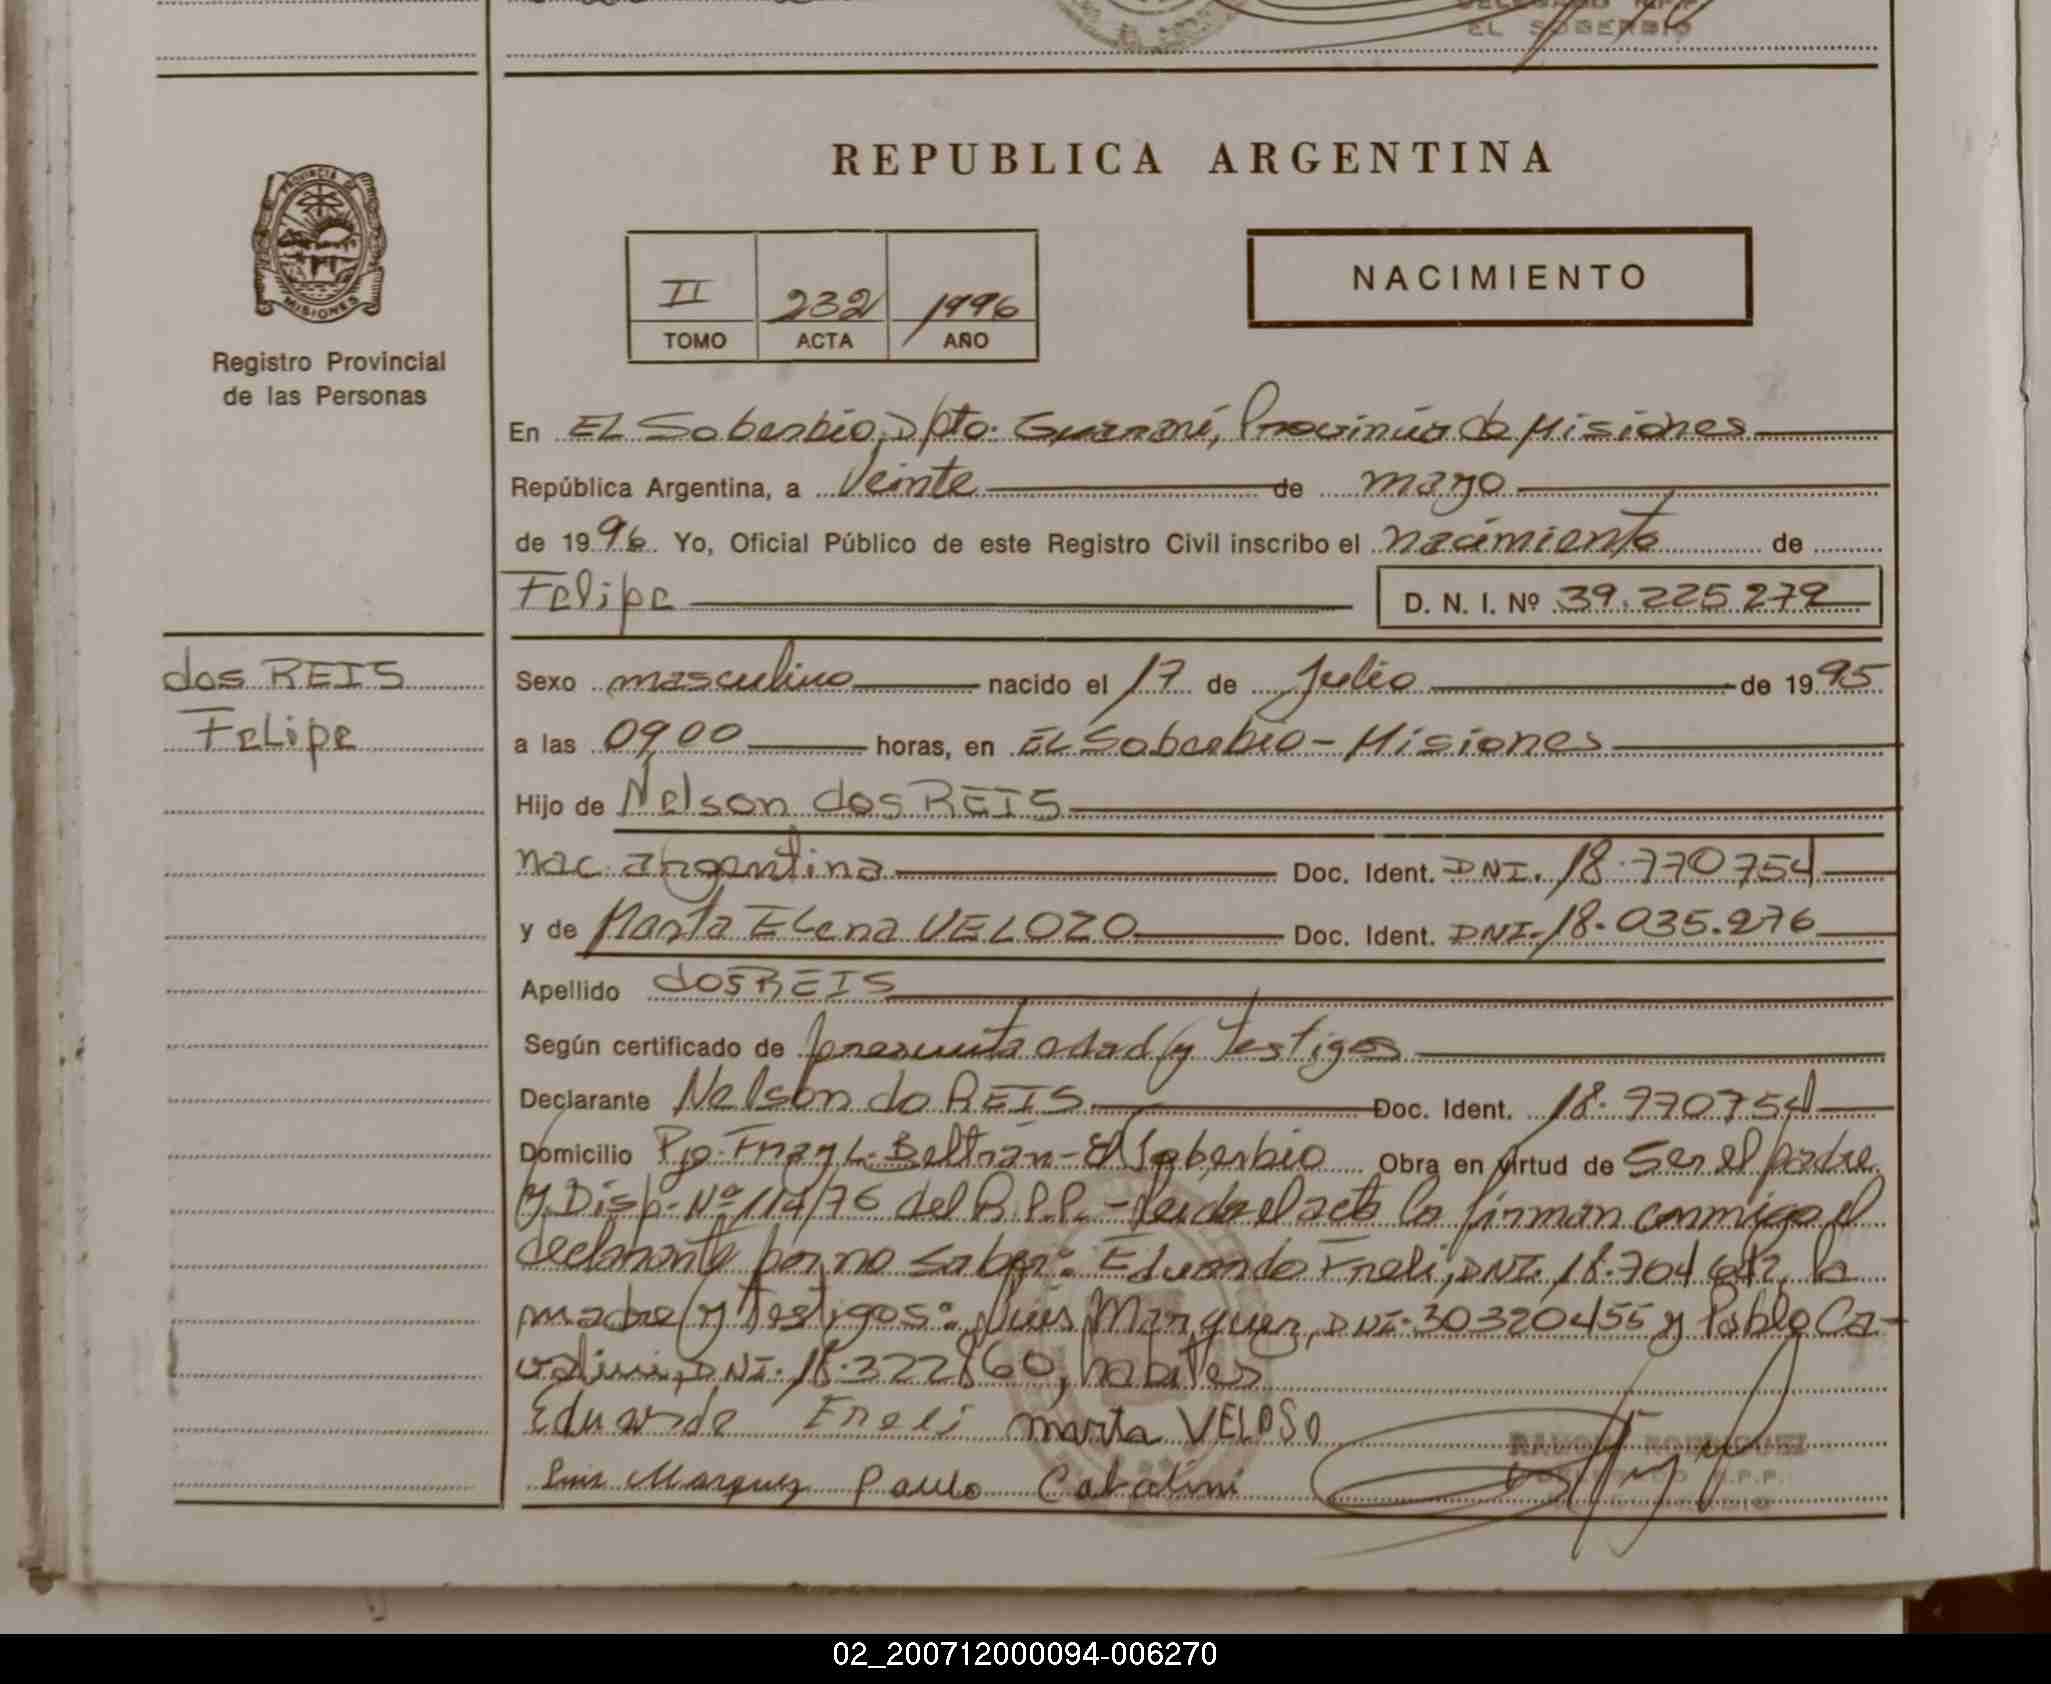 EL SOBERBIO
REPUBLICA ARGENTINA
PROVINCIA DE
MISIONES
Registro Provincial
de las Personas
II 232 1996
TOMO ACTA AÑO
NACIMIENTO
En EL Soberbio, Dpto. Guaraní, Provincia de Misiones
República Argentina, a Veinte de mayo
de 1996. Yo, Oficial Público de este Registro Civil inscribo el nacimiento de
Felipe D. N. I. Nº 39.225.279
dos REIS
Felipe
Sexo masculino nacido el 17 de Julio de 1995
a las 09,00 horas, en EL Soberbio - Misiones
Hijo de Nelson dos REIS
nac. argentina Doc. Ident. DNI. 18.770754
y de Marta ELena VELOZO Doc. Ident. DNI-18.035.276
Apellido dos REIS
Según certificado de presunta edad y testigos
Declarante Nelson do REIS Doc. Ident. 18.770754
Domicilio Pje. Fray L. Beltrán - El Soberbio Obra en virtud de Ser el padre
y Disp. Nº 114/76 del R.P.P. - Leida el acta la firman conmigo el
declarante por no saber: Eduardo Freli, DNI. 18.704 la
madre y Testigos: Luis Marquez, DNI. 30320455 y Pablo Ca-
valini, DNI. 18.322860, habiles
Eduardo Freli marta VELOSO
Luis Marquez Paulo Cabalini
RAMON RODRIGUEZ
02_200712000094-006270